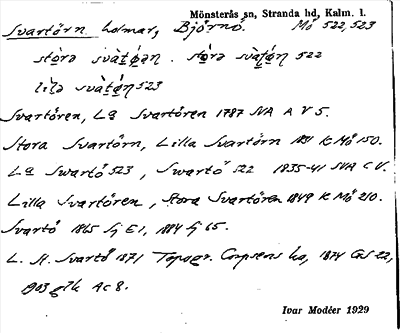 Mönsterås sn, Stranda hd, Kalm. l.
Svartörn holmar, Björnö. Mö 522, 523
522
523
Svartören, La Svartören 1787 SVA A V 5.
Stora Svartörn, Lilla Svartörn 1831 K Mö 150.
La Swartö 523, Swartö 522 1835-41 SVA C V.
Lilla Svartören, Stora Svartören 1849 K Mö 210.
Svartö 1865 Sj E1, 1884 Sj 65.
L. St. Svartö 1871 Topogr. Corpsens ka, 1874 GS 22,
1903 glk Ac 8.
Ivar Modéer 1929